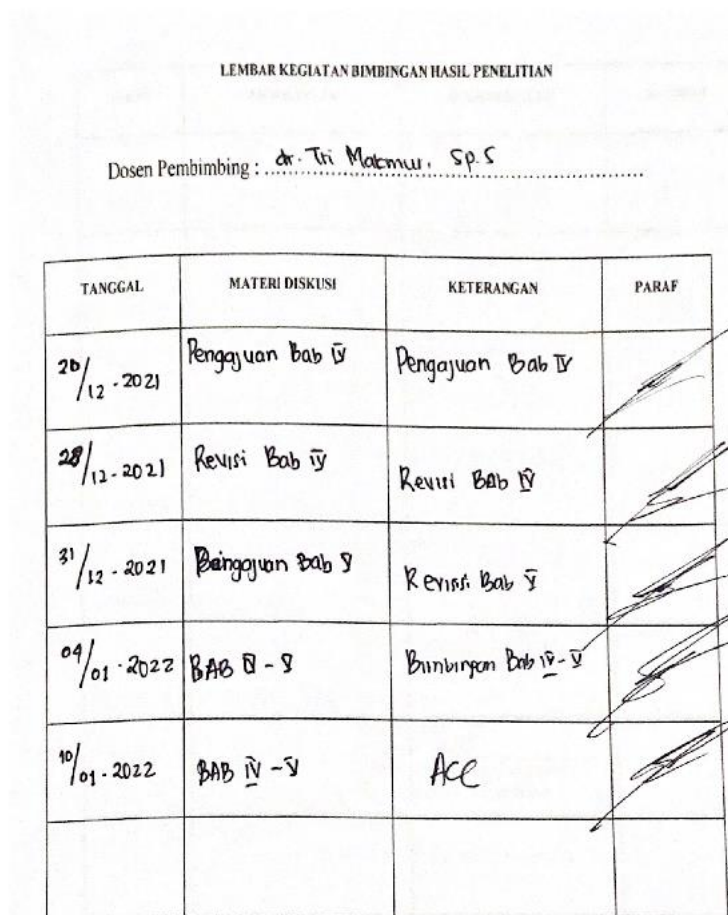 LEMBAR KEGIATAN BIMBINGAN HASIL PENELITIAN
Dosen Pembimbing : dr. Tri Makmur. Sp.S
TANGGAL MATERI DISKUSI KETERANGAN PARAF
20/12 - 2021 Pengajuan Bab IV Pengajuan Bab IV
28/12 - 2021 Revisi Bab IV Revisi BAb IV
31/12 - 2021 Pengajuan Bab V Revisi Bab V
04/01 - 2022 BAB IV - V Bimbingan Bab IV - V
10/01 - 2022 BAB IV - V ACC